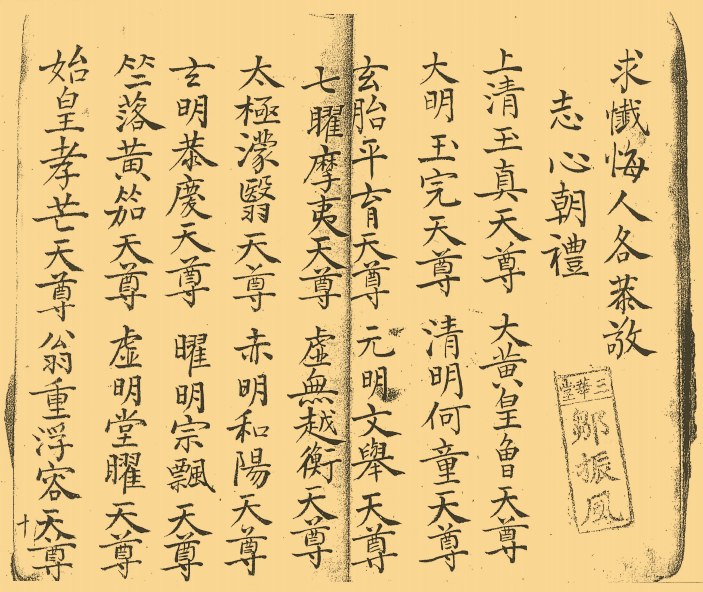 求懺悔人各恭敬
志心朝禮
三華堂
鄒振鳳
上清玉真天尊 大黃皇曾天尊
大明玉完天尊 清明何童天尊
玄胎平育天尊 元明文舉天尊
七曜摩夷天尊 虛無越衡天尊
太極濛翳天尊 赤明和陽天尊
玄明恭慶天尊 曜明宗飄天尊
竺落黃笳天尊 虛明堂曜天尊
始皇孝芒天尊 翁重浮容天尊
十